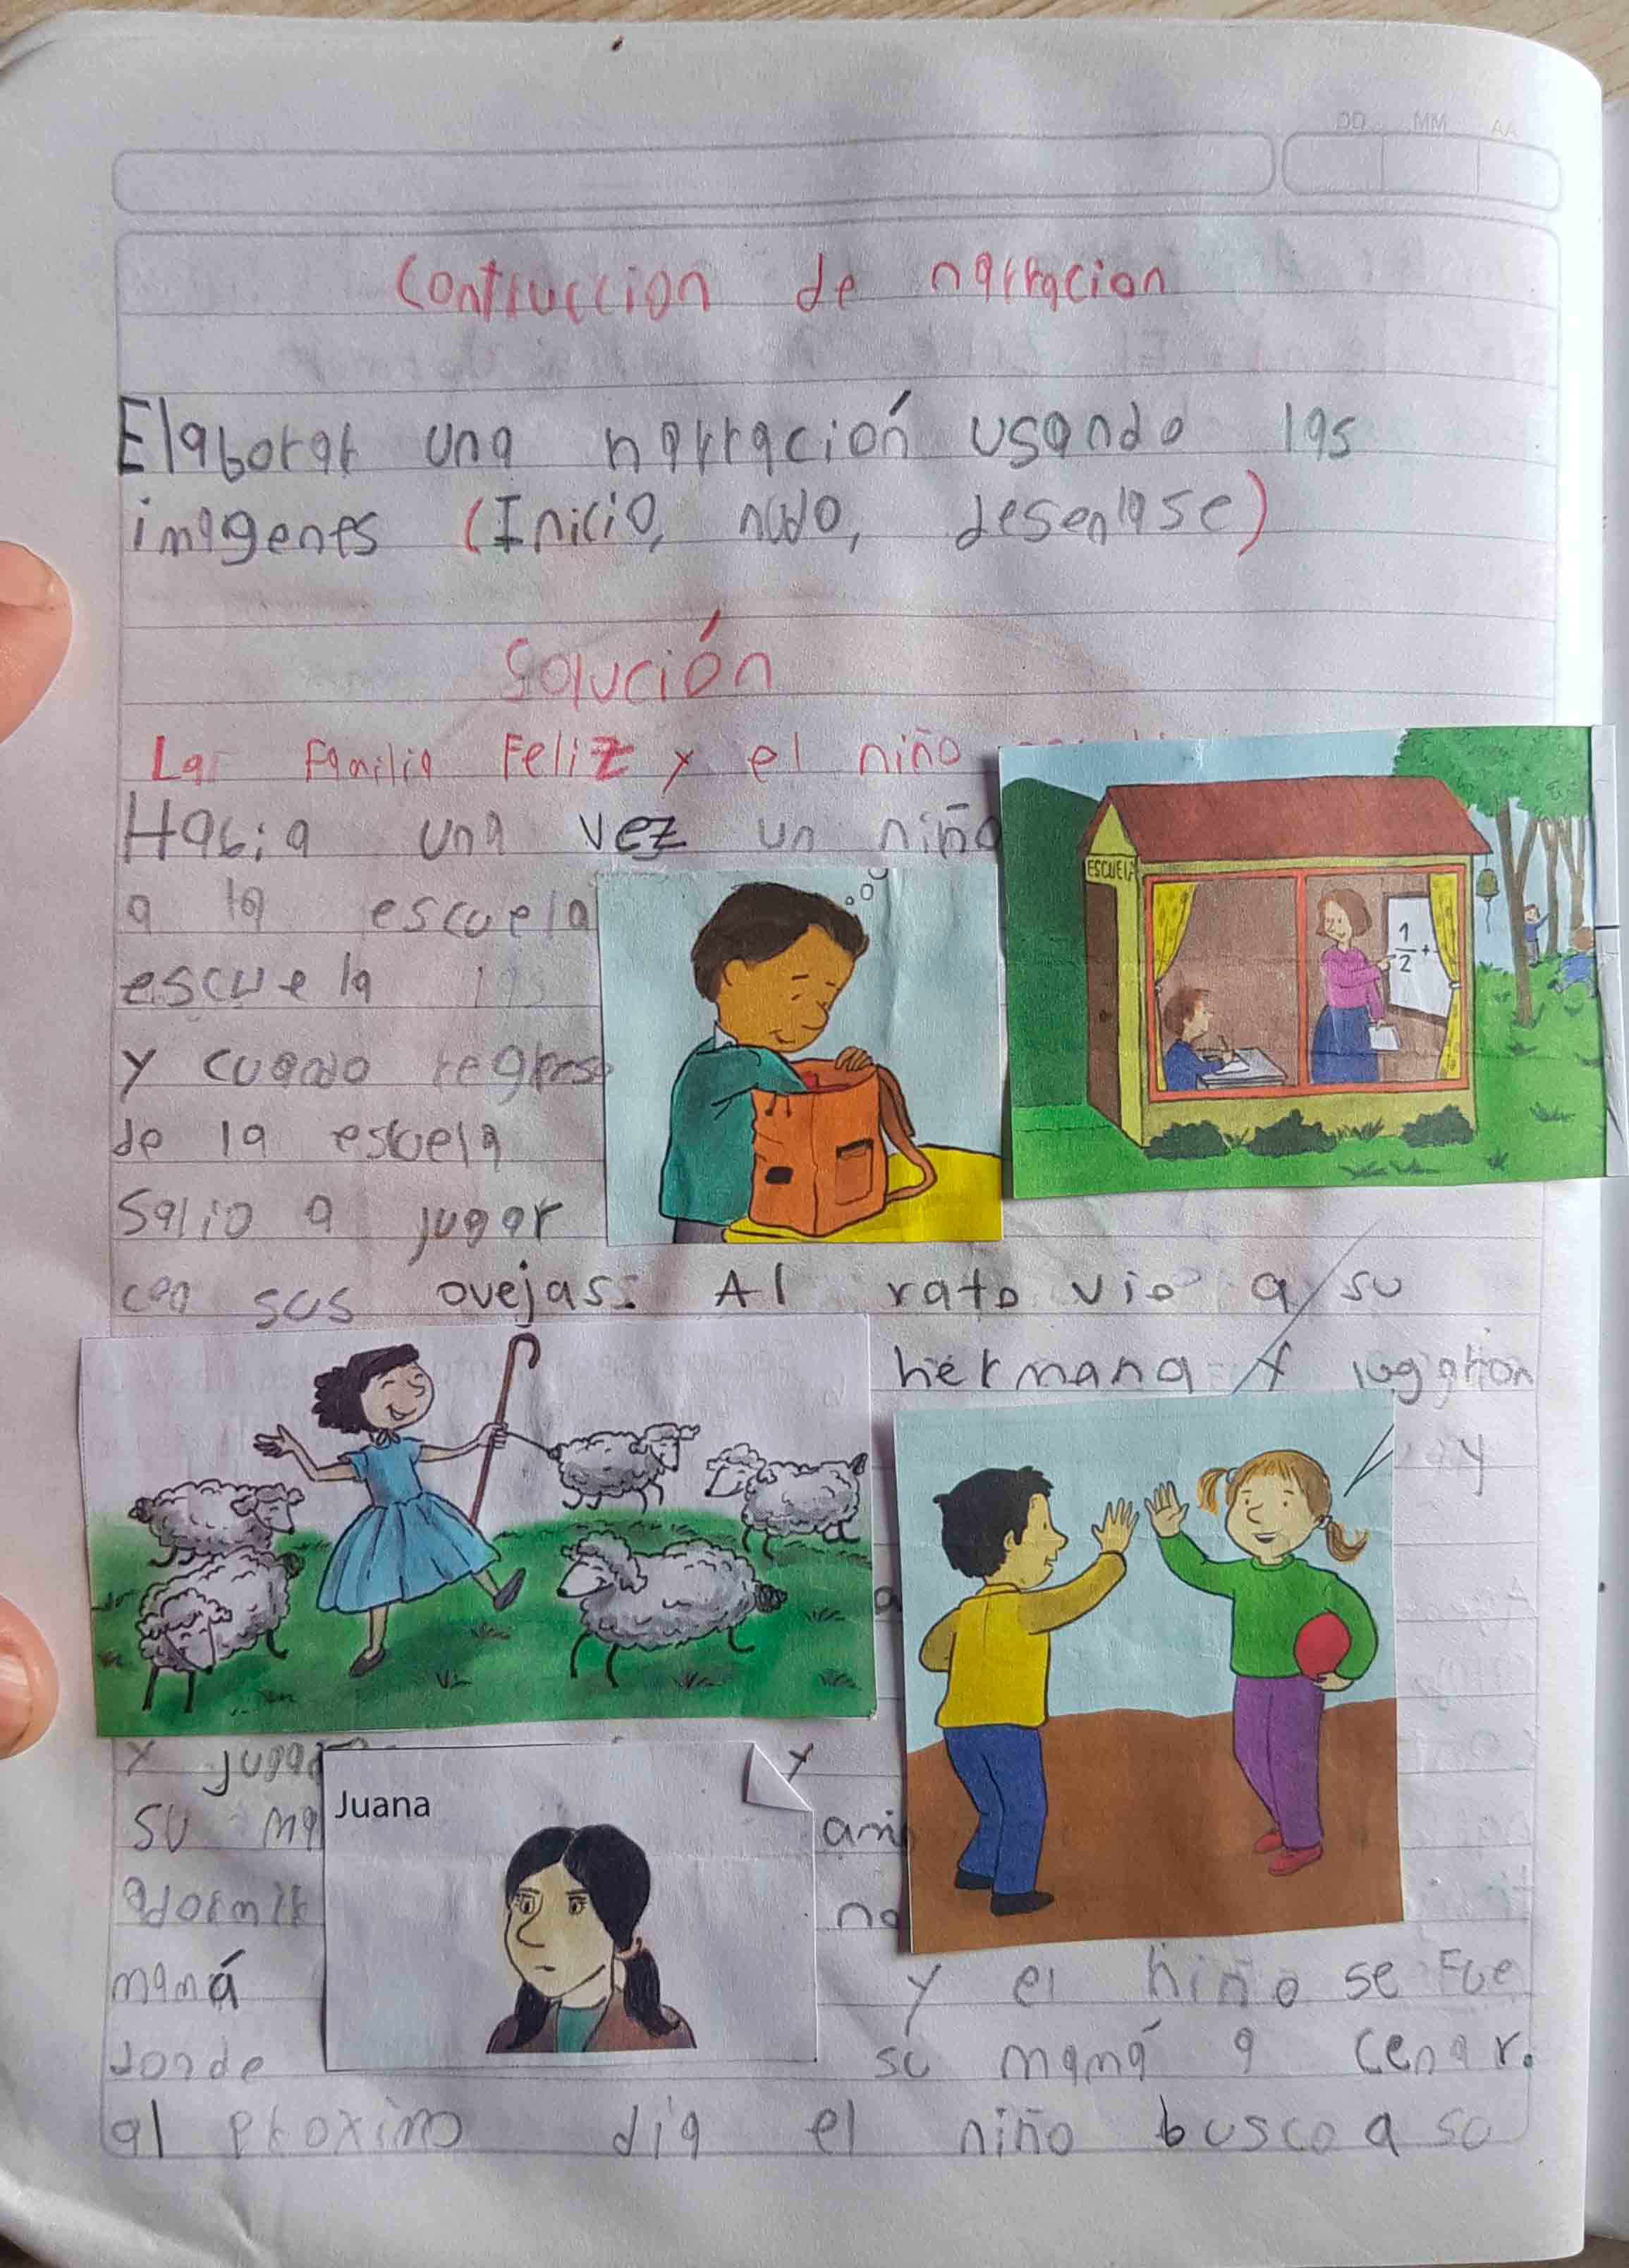 DD MM AA
Contruccion de narracion
Elaborar una narración usando las
imagenes (Inicio, nudo, desenlase)
Solución
La familia Feliz y el niño
Habia una vez un niño
ESCUELA
a la escuela
1/2 +
escuela las
y cuando regreso
de la escuela
Salio a jugar
con sus ovejas. Al rato vio a su
hermana y jugaron
y
y
Juana
su
adormir
mamá y el niño se fue
donde su mamá a cenar.
al proximo dia el niño busco a su